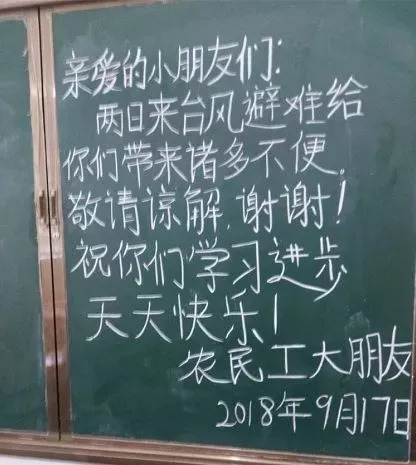 亲爱的小朋友们:
两日来台风避难给
你们带来诸多不便。
敬请谅解,谢谢!
祝你们学习进步
天天快乐!
农民工大朋友
2018年9月17日